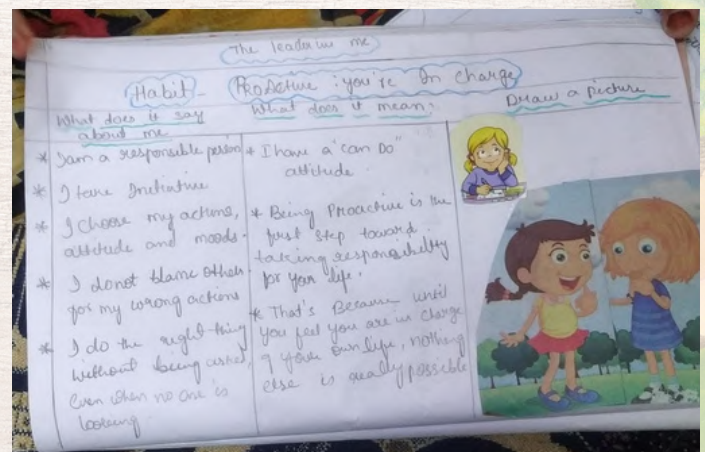 The leader in me
Habit - ProActive : you're In charge
What does it say
about me
* I am a responsible person
* I take Initiative
* I choose my actions,
attitude and moods.
* I donot blame others
for my wrong actions
* I do the right thing
without being asked,
Even when no one is
looking.
What does it mean:
* I have a "can Do"
attitude.
* Being Proactive is the
first step toward
taking responsibility
for your life.
* That's Because until
you feel you are in charge
of your own life, nothing
else is really possible
Draw a picture